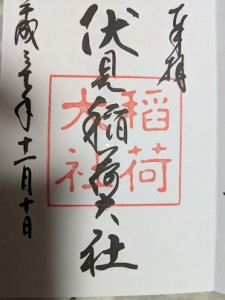 奉拝
伏見稲荷大社
稲荷大社
平成三十年十一月十日